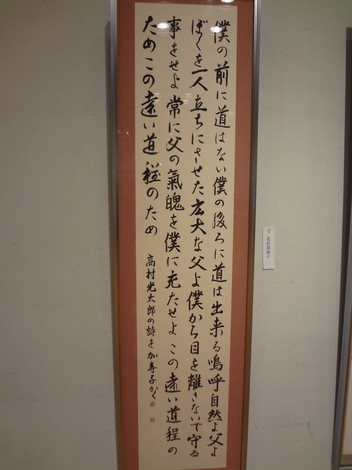 僕の前に道はない僕の後ろに道は出来る嗚呼自然よ父よ
ぼくを一人立ちにさせた広大な父よ僕から目を離さないで守る
事をせよ常に父の氣魄を僕に充たせよこの遠い道程の
ためこの遠い道程のため
高村光太郎の詩を かく